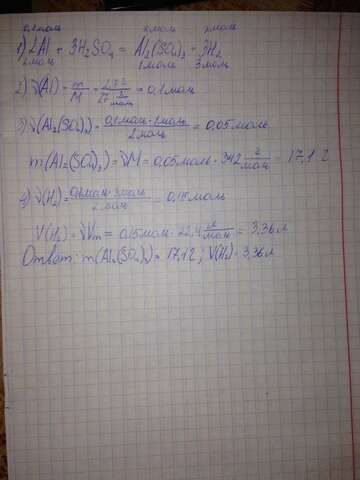 0,1моль xмоль xмоль
1) 2Al + 3H₂SO₄ = Al₂(SO₄)₃ + 3H₂
2моль 1моль 3моль
2) ν(Al) = m/M = 2,7г / 27 г/моль = 0,1моль
3) ν(Al₂(SO₄)₃) = 0,1моль · 1моль / 2моль = 0,05моль
m(Al₂(SO₄)₃) = νM = 0,05моль · 342 г/моль = 17,1 г
4) ν(H₂) = 0,1моль · 3моль / 2моль = 0,15моль
V(H₂) = νVm = 0,15моль · 22,4 л/моль = 3,36л
Ответ: m(Al₂(SO₄)₃) = 17,1г ; V(H₂) = 3,36л